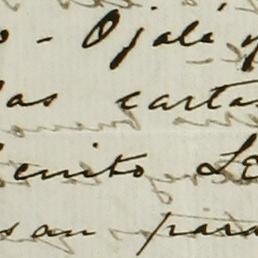 o - Ojalá y
las cartas
Benito Le
san para